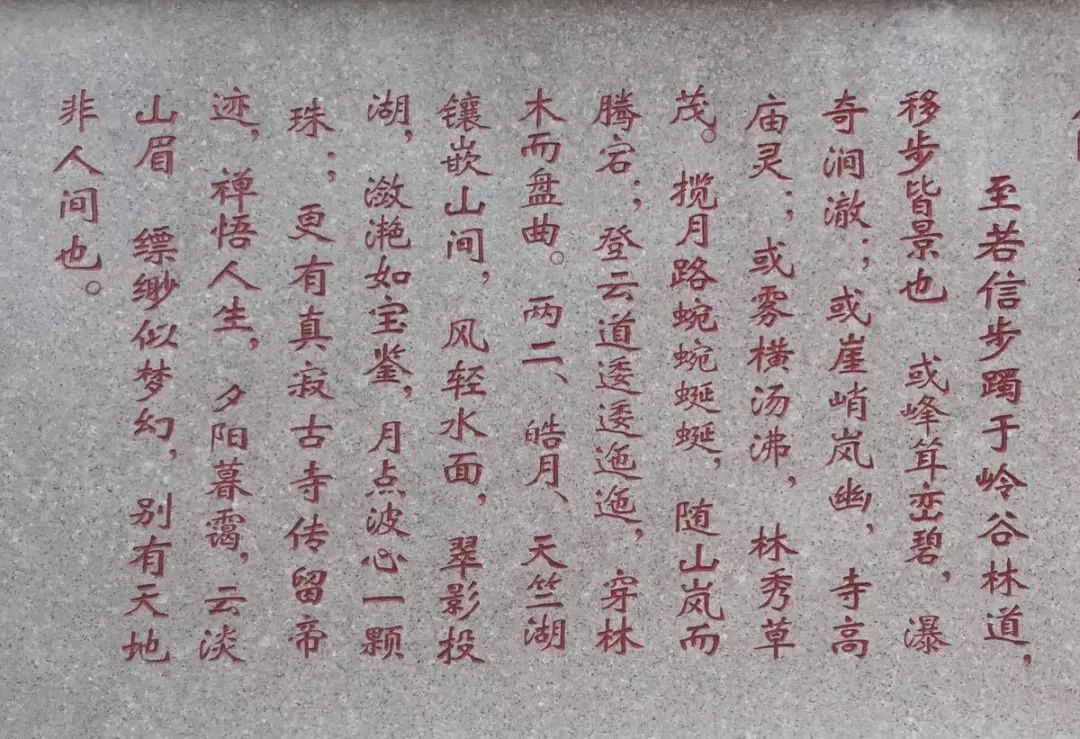 至若信步躅于岭谷林道，
移步皆景也 或峰耸峦碧，瀑
奇涧澈；或崖峭岚幽，寺高
庙灵；或雾横汤沸，林秀草
茂。揽月路蜿蜿蜒蜒，随山岚而
腾宕；登云道逶逶迤迤，穿林
木而盘曲。两二、皓月、天竺湖
镶嵌山间，风轻水面，翠影投
湖，潋滟如宝鉴，月点波心一颗
珠；更有真寂古寺传留帝
迹，禅悟人生，夕阳暮霭，云淡
山眉 缥缈似梦幻，别有天地
非人间也。